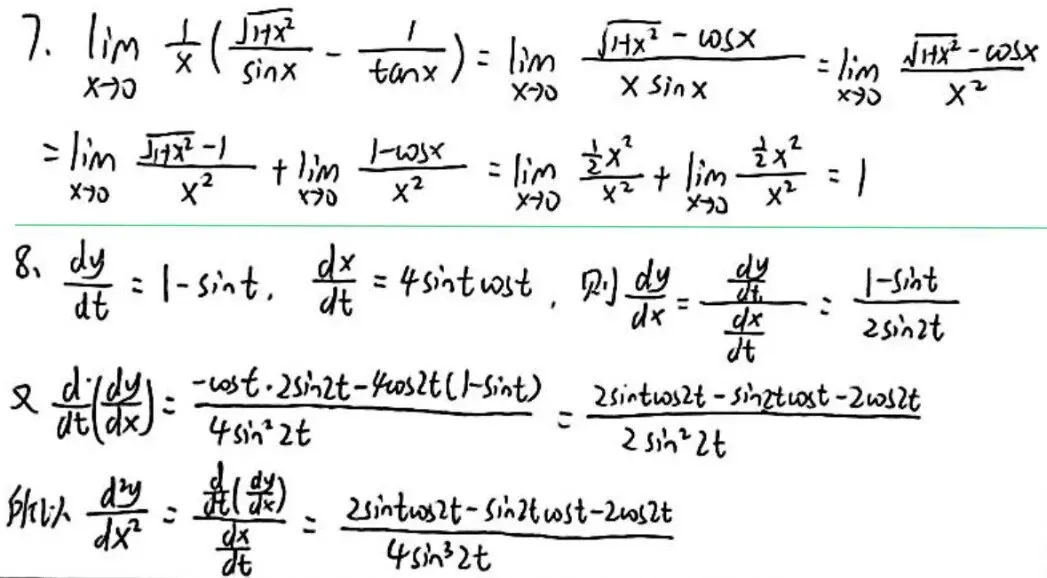 7. lim_{x→0} \frac{1}{x} ( \frac{\sqrt{1+x^2}}{sinx} - \frac{1}{tanx} ) = lim_{x→0} \frac{\sqrt{1+x^2} - cosx}{x sinx} = lim_{x→0} \frac{\sqrt{1+x^2} - cosx}{x^2}
= lim_{x→0} \frac{\sqrt{1+x^2} - 1}{x^2} + lim_{x→0} \frac{1-cosx}{x^2} = lim_{x→0} \frac{\frac{1}{2}x^2}{x^2} + lim_{x→0} \frac{\frac{1}{2}x^2}{x^2} = 1
8、 \frac{dy}{dt} = 1-sint, \frac{dx}{dt} = 4sintcost, 则 \frac{dy}{dx} = \frac{\frac{dy}{dt}}{\frac{dx}{dt}} = \frac{1-sint}{2sin2t}
又 \frac{d}{dt}(\frac{dy}{dx}) = \frac{-cost·2sin2t-4cos2t(1-sint)}{4sin^2 2t} = \frac{2sintcos2t-sin2tcost-2cos2t}{2sin^2 2t}
所以 \frac{d^2y}{dx^2} = \frac{\frac{d}{dt}(\frac{dy}{dx})}{\frac{dx}{dt}} = \frac{2sintcos2t-sin2tcost-2cos2t}{4sin^3 2t}